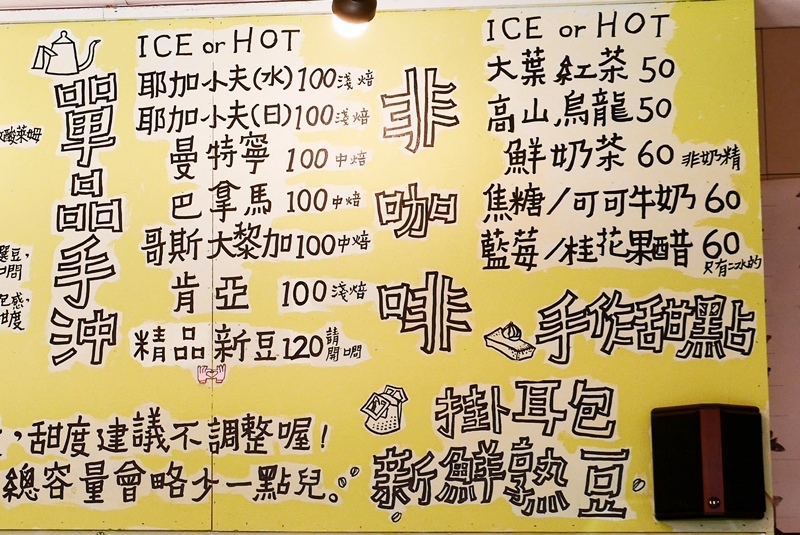 單品手沖
ICE or HOT
耶加小夫(水)100淺焙
耶加小夫(日)100淺焙
曼特寧 100中焙
巴拿馬 100中焙
哥斯大黎加100中焙
肯亞 100淺焙
精品新豆120請開口問
非咖啡
ICE or HOT
大葉紅茶 50
高山烏龍50
鮮奶茶 60 非奶精
焦糖/可可牛奶 60
藍莓/桂花果醋 60
只有冰的
手作甜點
掛耳包
新鮮熟豆
,甜度建議不調整喔!
總容量會略少一點兒。